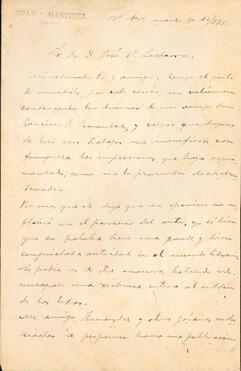 JUAN A. MARTINEZ
Bs As, marzo 30 de 1885
Sr. Dr. D. José V. Lastarria
Mi estimado Sr. y amigo: Tengo el gusto
de remitirle, por este correo, un volumen
conteniendo los dramas de mi amigo Don
Francisco F. Fernandez, y espero que despues
de leer esos trabajos me manifieste con
franqueza las impresiones que haya experi-
mentado, como me lo prometió desde
No crea que vd. deja que su opinion no in-
fluirá en el porvenir del autor, que es bien
que su palabra tiene una grande y bien
conquistada autoridad en el mundo literario.
No podia ser de otra manera habiendo vd.
consagrado una existencia entera al cultivo
de las letras.
Mi amigo Fernandez y otros jóvenes entu-
siastas se proponen hacer una publicacion